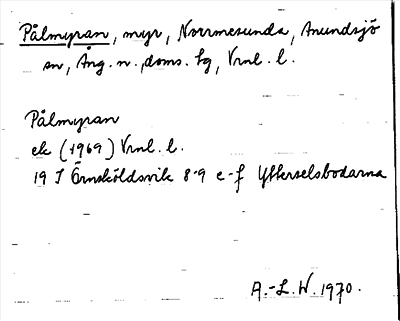 Pålmyran, myr, Norrmesunda, Anundsjö
sn, Ång. n. doms. hg, Vrnl. l.
Pålmyran
ek (1969) Vrnl. l.
19 I Örnsköldsvik 8-9 e-f Ytterselsbodarna
A.-L. W. 1970.